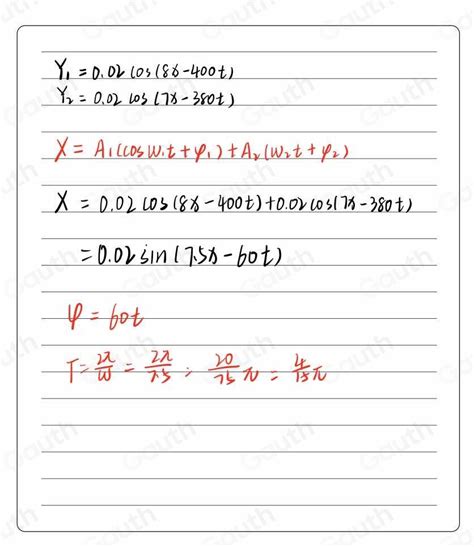 Y₁ = 0.02 cos(8x-400t)
Y₂ = 0.02 cos(7x-380t)
X = A₁(cosω₁t+φ₁)+A₂(ω₂t+φ₂)
X = 0.02 cos(8x-400t)+0.02cos(7x-380t)
=0.02 sin(7.5x-60t)
φ = 60t
T = 2π/ω = 2π/7.5 = 20/75 π = 4/15 π